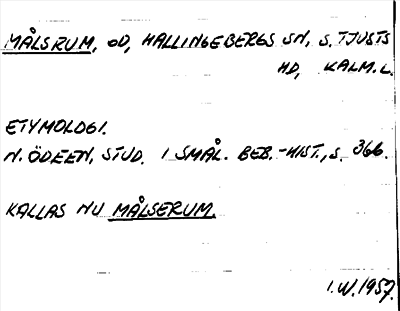 MÅLSRUM, OD, HALLINGEBERGS SN, S. TJUSTS
HD, KALM. L.
ETYMOLOGI.
N. ÖDEEN, STUD. I SMÅL. BEB.-HIST., S. 366.
KALLAS NU MÅLSERUM.
I.W. 1957.